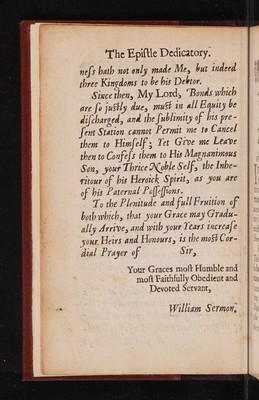 The Epiſtle Dedicatory.
neſs hath not only made Me, but indeed
three Kingdoms to be his Debtor.
Since then, My Lord, Bonds which
are ſo juſtly due, muſt in all Equity be
diſcharged, and the ſublimity of his pre-
ſent Station cannot Permit me to Cancel
them to Himſelf; Yet Give me Leave
then to Confeſs them to His Magnanimous
Son, your Thrice Noble Self, the Inhe-
ritour of his Heroick Spirit, as you are
of his Paternal Poſſeſſions.
To the Plenitude and full Fruition of
both which, that your Grace may Gradu-
ally Arrive, and with your Years increaſe
your Heirs and Honours, is the moſt Cor-
dial Prayer of Sir,
Your Graces moſt Humble and
moſt Faithfully Obedient and
Devoted Servant,
William Sermon.